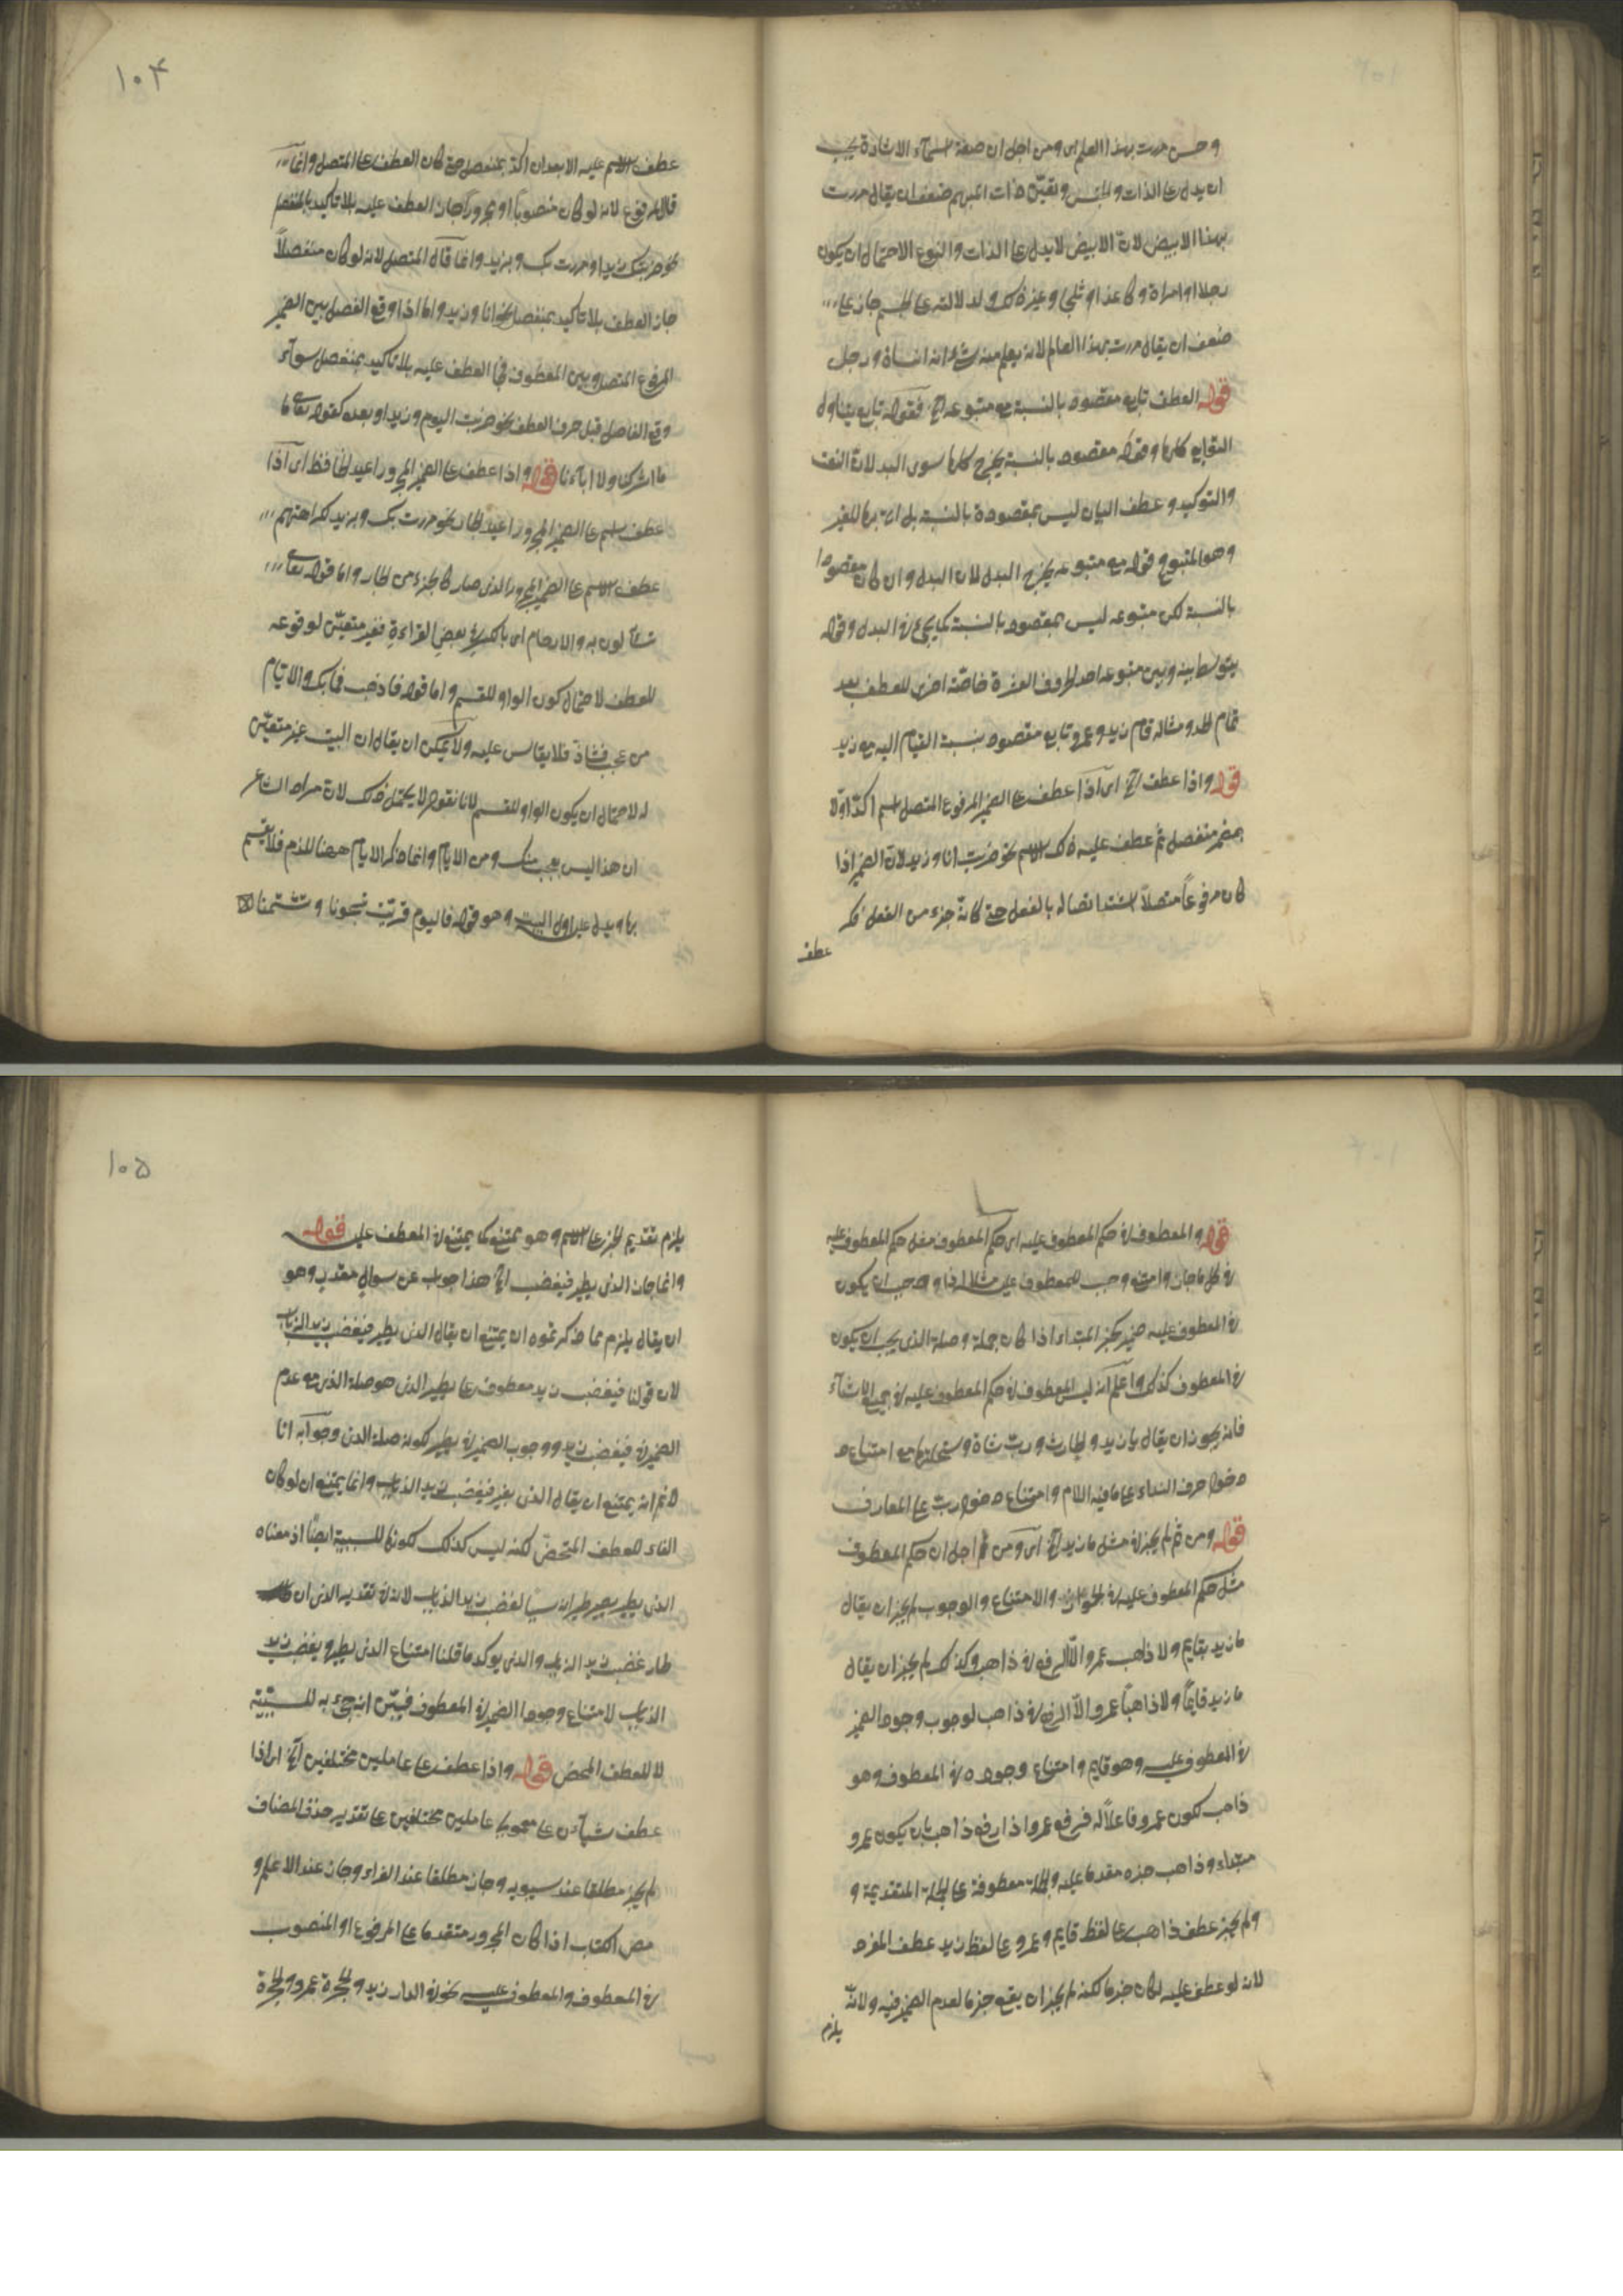 وحسن مررت بهذا العلم اى ومن اجل ان صفة اسماء الاشارة يجب
ان يدل على الذات والجنس وتعين ذات المبهم ضعف ان يقال مررت
بهذا الابيض لان الابيض لا يدل على الذات والنوع لاحتمال ان يكون
رجلا او امراة و او ثلجا وغير ذلك ولدلالته على جاز
ضعف ان يقال مررت بهذا العالم لانه يعلم منه انه انسان ورجل
قوله العطف تابع مقصود بالنسبة مع متبوعه الخ فقوله تابع يتناول
التوابع كلها وقوله مقصود بالنسبة يخرج كلها سوى البدل لان النعت
والتوكيد وعطف البيان ليس بمقصودة بالنسبة بل للغير
وهو المتبوع قوله مع متبوعه يخرج البدل لان البدل وان كان مقصودا
بالنسبة لكن متبوعه ليس بمقصود بالنسبة كما يجئ فى البدل وقوله
يتوسط بينه وبين متبوعه احد الحروف العشرة خاصة اخرى للعطف بعد
تمام الحد ومثاله قام زيد وعمرو تابع مقصود بنسبة القيام اليه مع زيد
قوله واذا عطف الخ اى اذا عطف على الضمير المرفوع المتصل اسم اكد اولا
بضمير منفصل ثم عطف عليه ذلك الاسم نحو ضربت انا وزيد لان الضمير اذا
كان مرفوعا متصلا اشتد اتصاله بالفعل حتى كانه جزء من الفعل فكره
عطف
١٠٤
عطف الاسم عليه الا بعد ان اكد بمنفصل حتى كان العطف على المتصل وانما
قال المرفوع لانه لو كان منصوبا او مجرورا جاز العطف عليه بلا تاكيد بالمنفصل
نحو ضربتك وزيدا ومررت بك وبزيد وانما قال المتصل لانه لو كان منفصلا
جاز العطف بلا تاكيد بمنفصل نحو انا وزيد واما اذا وقع الفصل بين الضمير
المرفوع المتصل وبين المعطوف فجاز العطف عليه بلا تاكيد بمنفصل سواء
وقع الفاصل قبل حرف العطف نحو ضربت اليوم وزيد او بعده كقوله تعالى
ما اشركنا ولا اباءنا قوله واذا عطف على الضمير المجرور اعيد الخافض اى اذا
عطف اسم على الضمير المجرور اعيد الجار نحو مررت بك وبزيد لكراهتهم
عطف الاسم على الضمير المجرور الذى صار كالجزء من الجار واما قوله تعالى
تسآءلون به والارحام اى بالكسر فى بعض القراءة فغير متعين لوقوعه
للعطف لاحتمال كون الواو للقسم واما قوله فاذهب فما بك والايام
من عجب فشاذ فلا يقاس عليه ولا يمكن ان يقال ان البيت غير متعين
له لاحتمال ان يكون الواو للقسم لانا نقول لا يحتمل ذلك لان مراد الشاعر
ان هذا ليس بعجب منك ومن الايام وانما ذكر الايام ههنا للذم فلا يقسم
بها ويدل عليه اول البيت وهو قوله فاليوم قربت تهجونا وتشتمنا
قوله والمعطوف فى حكم المعطوف عليه اى حكم المعطوف مثل حكم المعطوف عليه
فى كل ما جاز وامتنع ووجب للمعطوف عليه مثلا اذا وجب ان يكون
فى المعطوف عليه ضمير كخبر المبتداء اذا كان جملة وصلة الذى يجب ان يكون
فى المعطوف كذلك واعلم انه ليس المعطوف فى حكم المعطوف عليه فى جميع الاشياء
فانه يجوز ان يقال يا زيد والحارث ورب شاة وسخلتها مع امتناع
دخول حرف النداء على ما فيه اللام وامتناع دخول رب على المعارف
قوله ومن ثم لم يجز فى مثل ما زيد الخ اى ومن ثم اجل ان حكم المعطوف
مثل حكم المعطوف عليه فى الجواز والامتناع والوجوب لم يجز ان يقال
ما زيد بقايم ولا ذاهب عمرو الا الرفع فى ذاهب وكذلك لم يجز ان يقال
ما زيد قايما ولا ذاهبا عمرو الا الرفع فى ذاهب لوجوب وجود الضمير
فى المعطوف عليه وهو قايم وامتناع وجوده فى المعطوف وهو
ذاهب لكون عمرو فاعلا له فرفع عمرو اذا رفع ذاهب بان يكون عمرو
مبتداء وذاهب خبره مقدما عليه والجملة معطوفة على الجملة المتقدمة و
ولم يجز عطف ذاهب على لفظ قايم وعمرو على لفظ زيد عطف المفرد
لانه لو عطف عليه لكان خبرا لكنه لم يجز ان يقع خبرا لعدم الضمير فيه ولانه
يلزم
١٠٥
يلزم تقديم الخبر على الاسم وهو ممتنع كما يمتنع فى المعطوف عليه قوله
وانما جاز الذى يطير فيغضب الخ هذا جواب عن سوال مقدر وهو
ان يقال يلزم مما ذكرتموه ان يمتنع ان يقال الذى يطير فيغضب زيد الذباب
لان قولنا فيغضب زيد معطوف على يطير الذى هو صلة الذى مع عدم
الضمير فى فيغضب زيد ووجوب الضمير فى يطير لكونه صلة الذى وجوابه انا
لا نم انه يمتنع ان يقال الذى يطير فيغضب زيد الذباب وانما يمتنع ان لو كان
الفاء للعطف المتمحض لكنه ليس كذلك لكونها للسببية ايضا اذ معناه
الذى يطير يصير طيرانه سببا لغضب زيد الذباب لانه فى تقدير الذى ان
طار غضب زيد الذباب والذى يوكد ما قلنا امتناع الذى يطير ويغضب زيد
الذباب لامتناع وجود الضمير فى المعطوف فتبين انه جىء به للسببية
لا للعطف المحض قوله واذا عطف على عاملين مختلفين الخ اى اذا
عطف شيآن على معمولى عاملين مختلفين على تقدير حذف المضاف
لم يجز مطلقا عند سيبويه وجاز مطلقا عند الفراء وجاز عند الاعلم و
مص الكتاب اذا كان المجرور متقدما على المرفوع او المنصوب
فى المعطوف والمعطوف عليه نحو فى الدار زيد والحجرة عمرو والحجرة